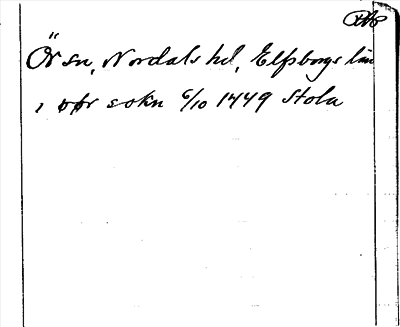 Ör sn, Nordals hd, Elfsborgs län
i ør sokn 6/10 1449 Stola